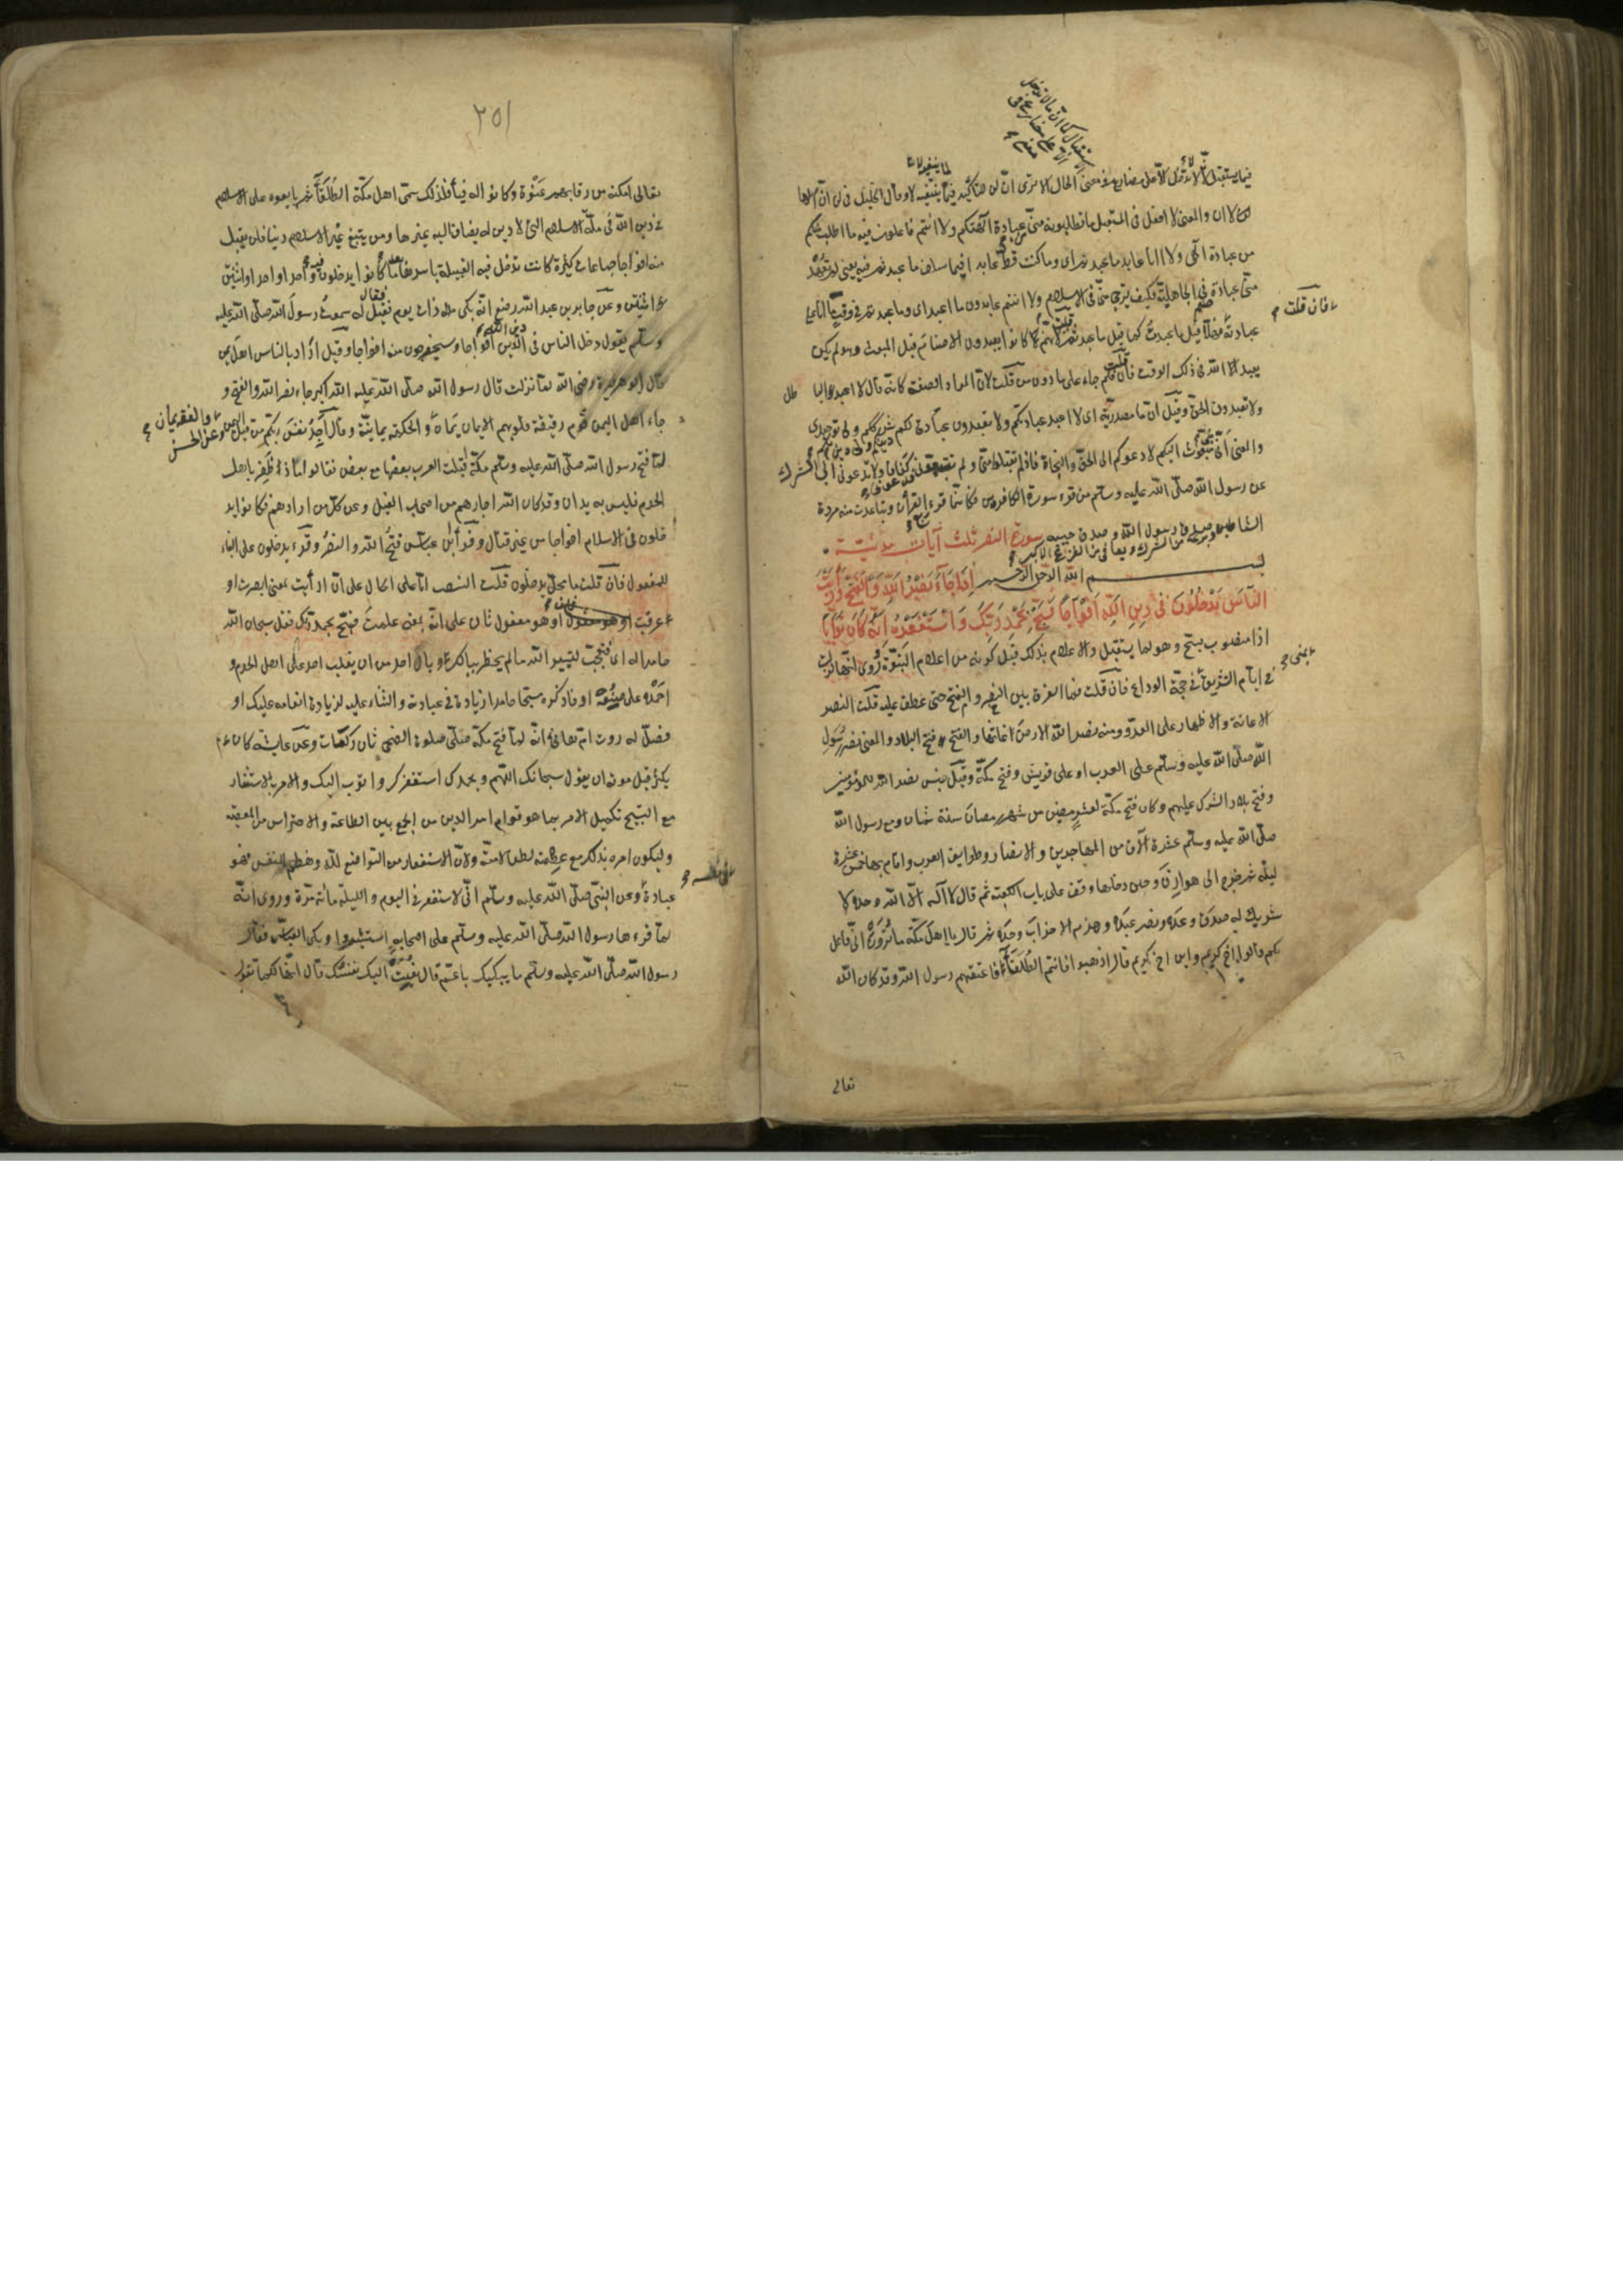 فيما يستقبل لأن لا لا تدخل الا على مضارع في معنى الحال الا ترى ان لن للتأكيد فيما ينفيه لا وقال الخليل في لن ان اصلها
لا ان والمعنى لا افعل في المستقبل ما تطلبونه مني من عبادة آلهتكم ولا انتم فاعلون فيه ما اطلب منكم
من عبادة الهي ولا انا عابد ما عبدتم اى وما كنت قط عابدا فيما سلف ما عبدتم فيه يعني لم تعهد
مني عبادة صنم في الجاهلية فكيف ترجى مني في الاسلام ولا انتم عابدون ما اعبد اى وما عبدتم في وقت ما انا على
فان قلت
عبادته فهلا قيل ما عبدت كما قيل ما عبدتم قلت لانهم كانوا يعبدون الاصنام قبل المبعث وهو لم يكن
يعبد الله في ذلك الوقت فان قلت فلم جاء على ما دون من قلت لان المراد الصفة كانه قال لا اعبد الباطل
ولا تعبدون الحق وقيل ان ما مصدرية اى لا اعبد عبادتكم ولا تعبدون عبادتي لكم دينكم ولي دين لكم شرككم ولي توحيدي
والمعنى انى نبي مبعوث اليكم لادعوكم الى الحق والنجاة فاذا لم تقبلوا مني ولم تتبعوني فدعوني كفافا ولا تدعوني الى الشرك
عن رسول الله صلى الله عليه وسلم من قرء سورة الكافرون فكانما قرء ربع القرآن وتباعدت منه مردة
الشياطين وبرئ من الشرك ويعافى من الفزع الاكبر صدق رسول الله وصدق حبيبه سورة النصر ثلث آيات مدنية
بسم الله الرحمن الرحيم اِذَا جَآءَ نَصْرُ اللهِ وَالْفَتْحُ وَرَاَيْتَ
النَّاسَ يَدْخُلُونَ فِى دِينِ اللهِ اَفْوَاجًا فَسَبِّحْ بِحَمْدِ رَبِّكَ وَاسْتَغْفِرْهُ اِنَّهُ كَانَ تَوَّابًا
اذا منصوب بسبح وهو لما يستقبل والاعلام بذلك قبل كونه من اعلام النبوة روى انها نزلت
بمنى
في ايام التشريق في حجة الوداع فان قلت فما الفرق بين النصر والفتح حتى عطف عليه قلت النصر
الاعانة والاظهار على العدو ومنه نصر الله الارض اغاثها والفتح فتح البلاد والمعنى نصر رسول
الله صلى الله عليه وسلم على العرب او على قريش وفتح مكة وقيل جنس نصر الله للمؤمنين
وفتح بلاد الشرك عليهم وكان فتح مكة لعشر مضين من شهر رمضان سنة ثمان ومع رسول الله
صلى الله عليه وسلم عشرة آلاف من المهاجرين والانصار وطوايف العرب واقام بها خمس عشرة
ليلة ثم خرج الى هوازن وحين دخلها وقف على باب الكعبة ثم قال لا آله الا الله وحده لا
شريك له صدق وعده ونصر عبده وهزم الاحزاب وحده ثم قال يا اهل مكة ما ترون انى فاعل
بكم قالوا خيرا اخ كريم وابن اخ كريم قال اذهبوا فانتم الطلقاء فاعتقهم رسول الله وقد كان الله
تعالى
٢٥١
تعالى امكنه من رقابهم عنوة وكانوا له فيأ فلذلك سمى اهل مكة الطلقاء ثم بايعوه على الاسلام
في دين الله في ملة الاسلام التى لا دين له يضاف اليه غيرها ومن يبتغ غير الاسلام دينا فلن يقبل
منه افواجا جماعات كثيرة كانت تدخل فيه القبيلة باسرها بعد ما كانوا يدخلون فيه واحدا واحدا واثنين
اثنين وعن جابر بن عبد الله رضع انه بكى ذات يوم فقيل له فقال سمعت رسول الله صلى الله عليه
وسلم يقول دخل الناس في دين الله افواجا وسيخرجون منه افواجا وقيل اراد بالناس اهل اليمن
قال ابو هريرة رضى الله لما نزلت قال رسول الله صلى الله عليه الله اكبر جاء نصر الله والفتح و
جاء اهل اليمن قوم رقيقة قلوبهم الايمان يمان والفقه يمان والحكمة يمانية وقال اجد نفس ربكم من قبل اليمن وعن الحسن
لما فتح رسول الله صلى الله عليه وسلم مكة اقبلت العرب بعضها مع بعض فقالوا اما اذا ظفر باهل
الحرم فليس به يدان وقد كان الله اجارهم من اصحاب الفيل وعن كل من ارادهم فكانوا يد
خلون في الاسلام افواجا من غير قتال وقرأ ابن عباس فتح الله والنصر وقرء يدخلون على البناء
للمفعول فان قلت ما محل يدخلون قلت النصب اما على الحال على ان رأيت بمعنى ابصرت او
عرفت او هو مفعول ثان على انه بمعنى علمت فسبح بحمد ربك فقل سبحان الله
حامدا له اى فتعجب لتيسير الله ما لم يخطر ببالك وبال احد من ان يغلب احد على اهل الحرم و
احمده على صنعه او فاذكره مسبحا حامدا زيادة في عبادته والثناء عليه لزيادة انعامه عليك او
فصل له روت ام هانئ انه لما فتح مكة صلى صلوة الضحى ثمان ركعات وعن عايشة كان
يكثر قبل موته ان يقول سبحانك اللهم وبحمدك استغفرك واتوب اليك والامر بالاستغفار
مع التسبيح تكميل الامر بما هو قوام امر الدين من الجمع بين الطاعة والاحتراس من المعصية
وليكون امره بذلك مع عصمته لطفا لامته ولان الاستغفار من التواضع لله وهضم النفس فهو
عبادة وعن النبى صلى الله عليه وسلم انى لاستغفر في اليوم والليلة مائة مرة وروى انه
لما قرءها رسول الله صلى الله عليه وسلم على اصحابه استبشروا وبكى العباس فقال
رسول الله صلى الله عليه وسلم ما يبكيك يا عم قال نعيت اليك نفسك قال انها لكما تقول